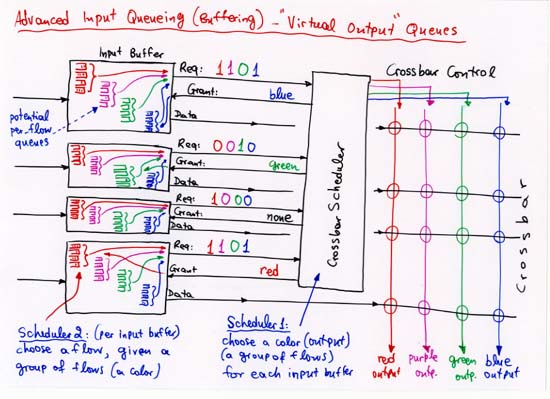 Advanced Input Queueing (Buffering) - "Virtual Output" Queues
Input Buffer
Req: 1101
Grant: blue
Data
potential
per-flow
queues
Req: 0010
Grant: green
Data
Req: 1000
Grant: none
Data
Req: 1101
Grant red
Data
Crossbar Scheduler
Crossbar Control
Crossbar
Scheduler 2: (per input buffer)
choose a flow, given a
group of flows (a color)
Scheduler 1:
choose a color (output)
(a group of flows)
for each input buffer
red
output
purple
outp.
green
outp.
blue
output